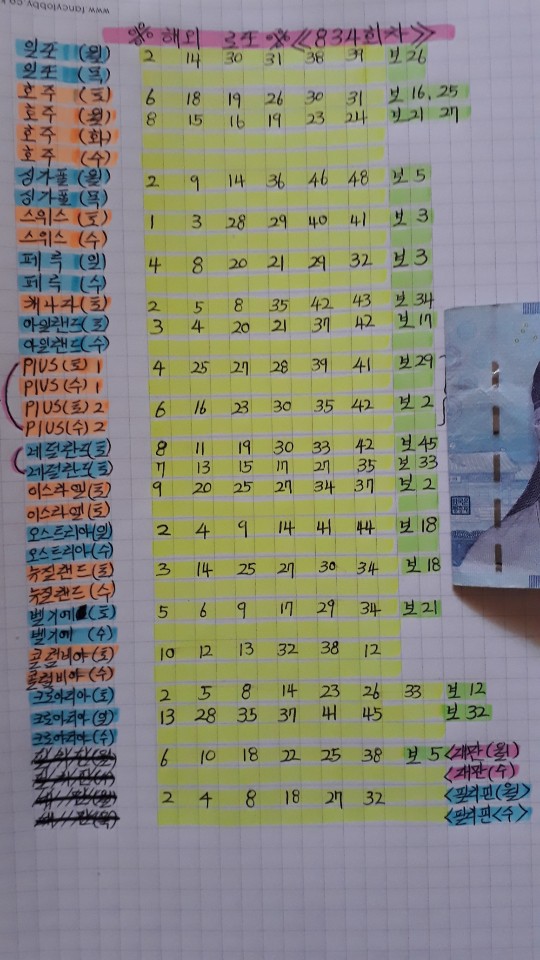 www.fancylobby.co.k
※ 해외 로또 ※ <834회차>
일본 (월) 2 14 30 31 38 39 보 26
일본 (목)
호주 (토) 6 18 19 26 30 31 보 16, 25
호주 (월) 8 15 16 19 23 24 보 21 27
호주 (화)
호주 (수)
싱가폴 (월) 2 9 14 36 46 48 보 5
싱가폴 (목)
스위스 (토) 1 3 28 29 40 41 보 3
스위스 (수)
페루 (일) 4 8 20 21 29 32 보 3
페루 (수)
캐나다 (토) 2 5 8 35 42 43 보 34
아일랜드(토) 3 4 20 21 37 42 보 17
아일랜드(수)
PIUS(토) 1 4 25 27 28 39 41 보 29
PIUS(수) 1
PIUS(토) 2 6 16 23 30 35 42 보 2
PIUS(수) 2
네덜란드(토) 8 11 19 30 33 42 보 45
네덜란드(토) 7 13 15 17 27 35 보 33
이스라엘(토) 9 20 25 27 34 37 보 2
이스라엘(토)
오스트리아(일) 2 4 9 14 41 44 보 18
오스트리아(수)
뉴질랜드(토) 3 14 25 27 30 34 보 18
뉴질랜드(수)
벨기에 (토) 5 6 9 17 29 34 보 21
벨기에 (수)
콜럼비아(토) 10 12 13 32 38 12
콜럼비아(수)
크로아티아(토) 2 5 8 14 23 26 33 보 12
크로아티아(일) 13 28 35 37 41 45 보 32
크로아티아(수)
6 10 18 22 25 38 보 5 <재판(월)
<재판(수)
2 4 8 18 27 32 <필리핀(월)>
<필리핀<수>